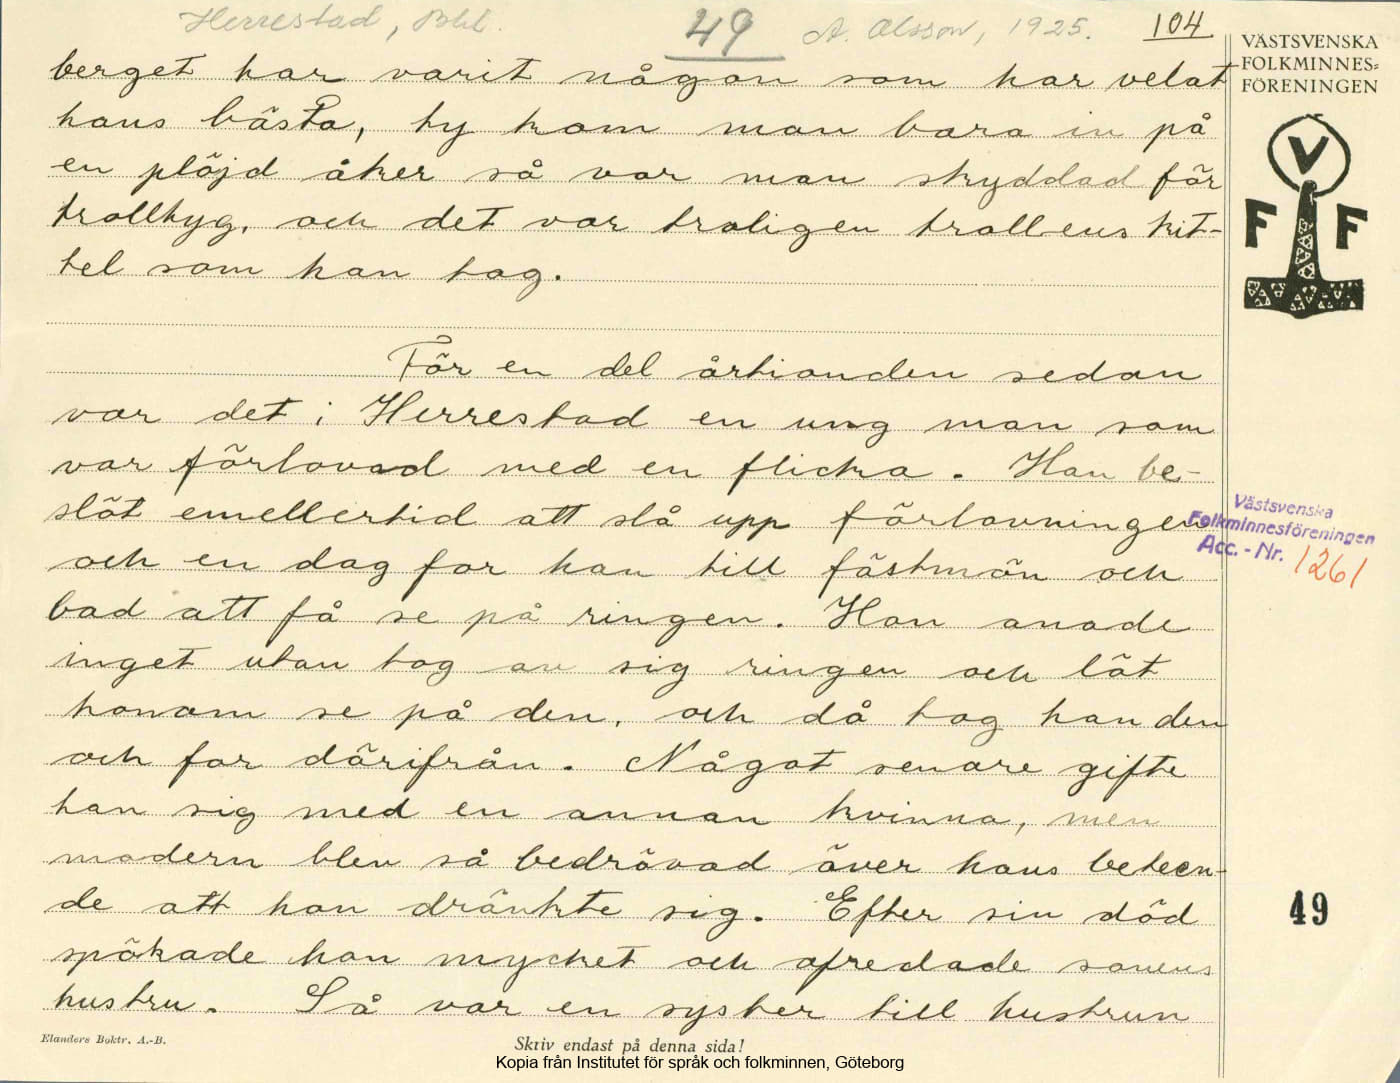 Herrestad, Bhl.
49
A. Olsson, 1925.
104
VÄSTSVENSKA
FOLKMINNES=
FÖRENINGEN
V
F F
berget har varit någon som har velat
hans bästa, ty kom man bara in på
en plöjd åker så var man skyddad för
trolltyg, och det var troligen trollens kit-
tel som han tog.
För en del årtionden sedan
var det i Herrestad en ung man som
var förlovad med en flicka. Han be-
slöt emellertid att slå upp förlovningen
och en dag for han till fästmön och
bad att få se på ringen. Hon anade
inget utan tog av sig ringen och lät
honom se på den, och då tog han den
och for därifrån. Något senare gifte
han sig med en annan kvinna, men
modern blev så bedrövad över hans beteen-
de att hon dränkte sig. Efter sin död
spökade hon mycket och ofredade sonens
hustru. Så var en syster till hustrun
Västsvenska
Folkminnesföreningen
Acc. - Nr. 1261
49
Elanders Boktr. A.-B.
Skriv endast på denna sida!
Kopia från Institutet för språk och folkminnen, Göteborg